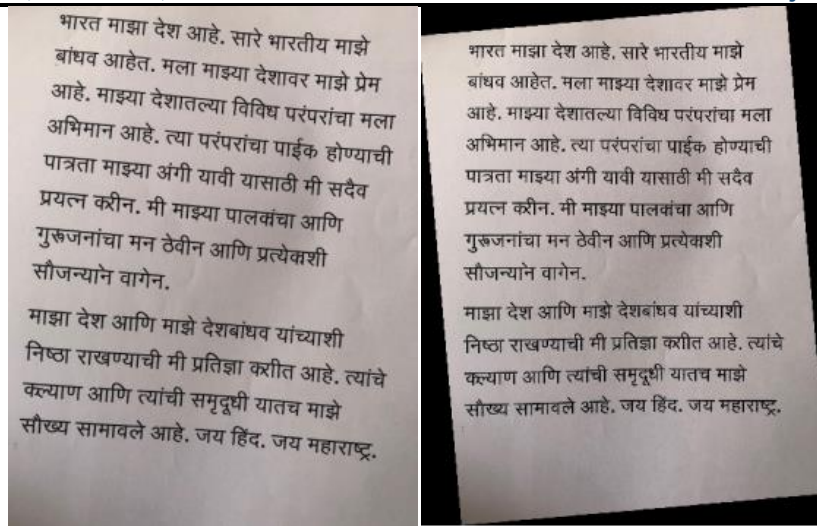 भारत माझा देश आहे. सारे भारतीय माझे
बांधव आहेत. मला माझ्या देशावर माझे प्रेम
आहे. माझ्या देशातल्या विविध परंपरांचा मला
अभिमान आहे. त्या परंपरांचा पाईक होण्याची
पात्रता माझ्या अंगी यावी यासाठी मी सदैव
प्रयत्न करीन. मी माझ्या पालकांचा आणि
गुरूजनांचा मन ठेवीन आणि प्रत्येकाशी
सौजन्याने वागेन.
माझा देश आणि माझे देशबांधव यांच्याशी
निष्ठा राखण्याची मी प्रतिज्ञा करीत आहे. त्यांचे
कल्याण आणि त्यांची समृदूधी यातच माझे
सौख्य सामावले आहे. जय हिंद. जय महाराष्ट्र.
भारत माझा देश आहे. सारे भारतीय माझे
बांधव आहेत. मला माझ्या देशावर माझे प्रेम
आहे. माझ्या देशातल्या विविध परंपरांचा मला
अभिमान आहे. त्या परंपरांचा पाईक होण्याची
पात्रता माझ्या अंगी यावी यासाठी मी सदैव
प्रयत्न करीन. मी माझ्या पालकांचा आणि
गुरूजनांचा मन ठेवीन आणि प्रत्येकाशी
सौजन्याने वागेन.
माझा देश आणि माझे देशबांधव यांच्याशी
निष्ठा राखण्याची मी प्रतिज्ञा करीत आहे. त्यांचे
कल्याण आणि त्यांची समृदूधी यातच माझे
सौख्य सामावले आहे. जय हिंद. जय महाराष्ट्र.